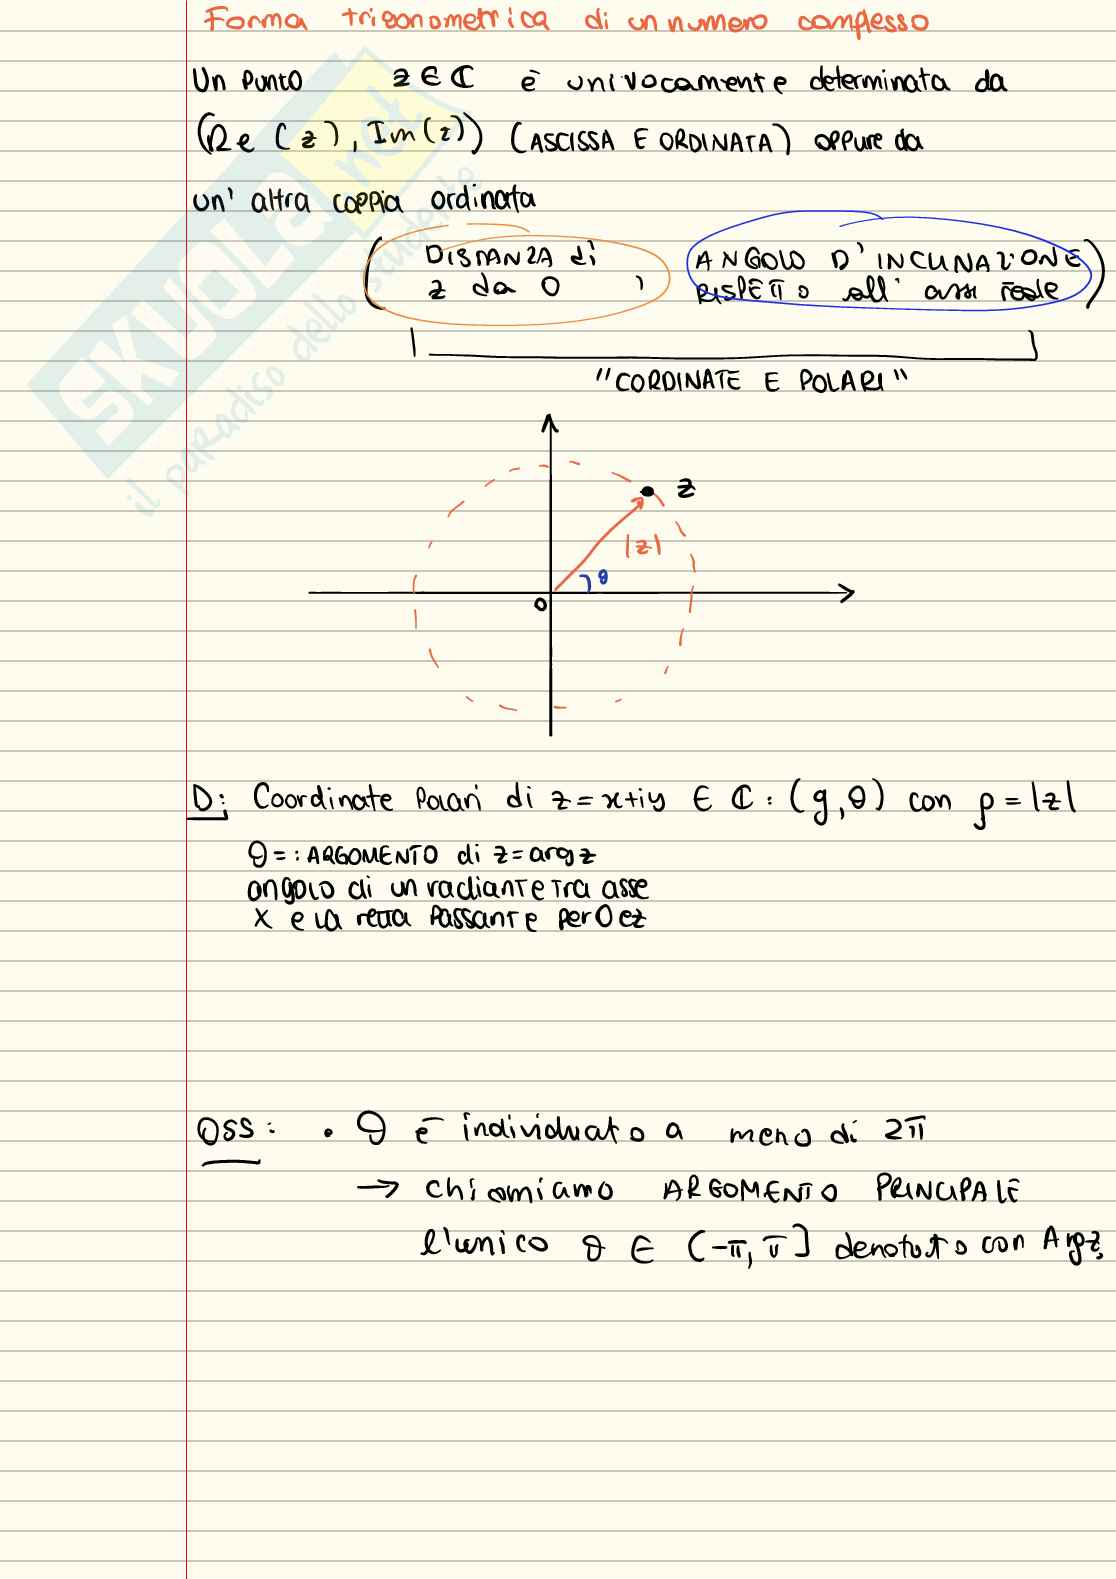 Forma trigonometrica di un numero complesso
Un punto z ∈ ℂ è univocamente determinata da
(Re(z), Im(z)) (ASCISSA E ORDINATA) oppure da
un' altra coppia ordinata
( DISTANZA di z da 0 , ANGOLO D' INCLINAZIONE RISPETTO all' assi reale )
"CORDINATE E POLARI"
z
|z|
θ
0
D: Coordinate Polari di z = x+iy ∈ ℂ : (g, θ) con ρ = |z|
θ = : ARGOMENTO di z = arg z
angolo di un radiante tra asse
x e la retta passante per 0 e z
OSS: • θ è individuato a meno di 2π
→ chiamiamo ARGOMENTO PRINCIPALE
l'unico θ ∈ (-π, π] denotato con Arg z.
SKUOLA.net
il paradiso dello studente